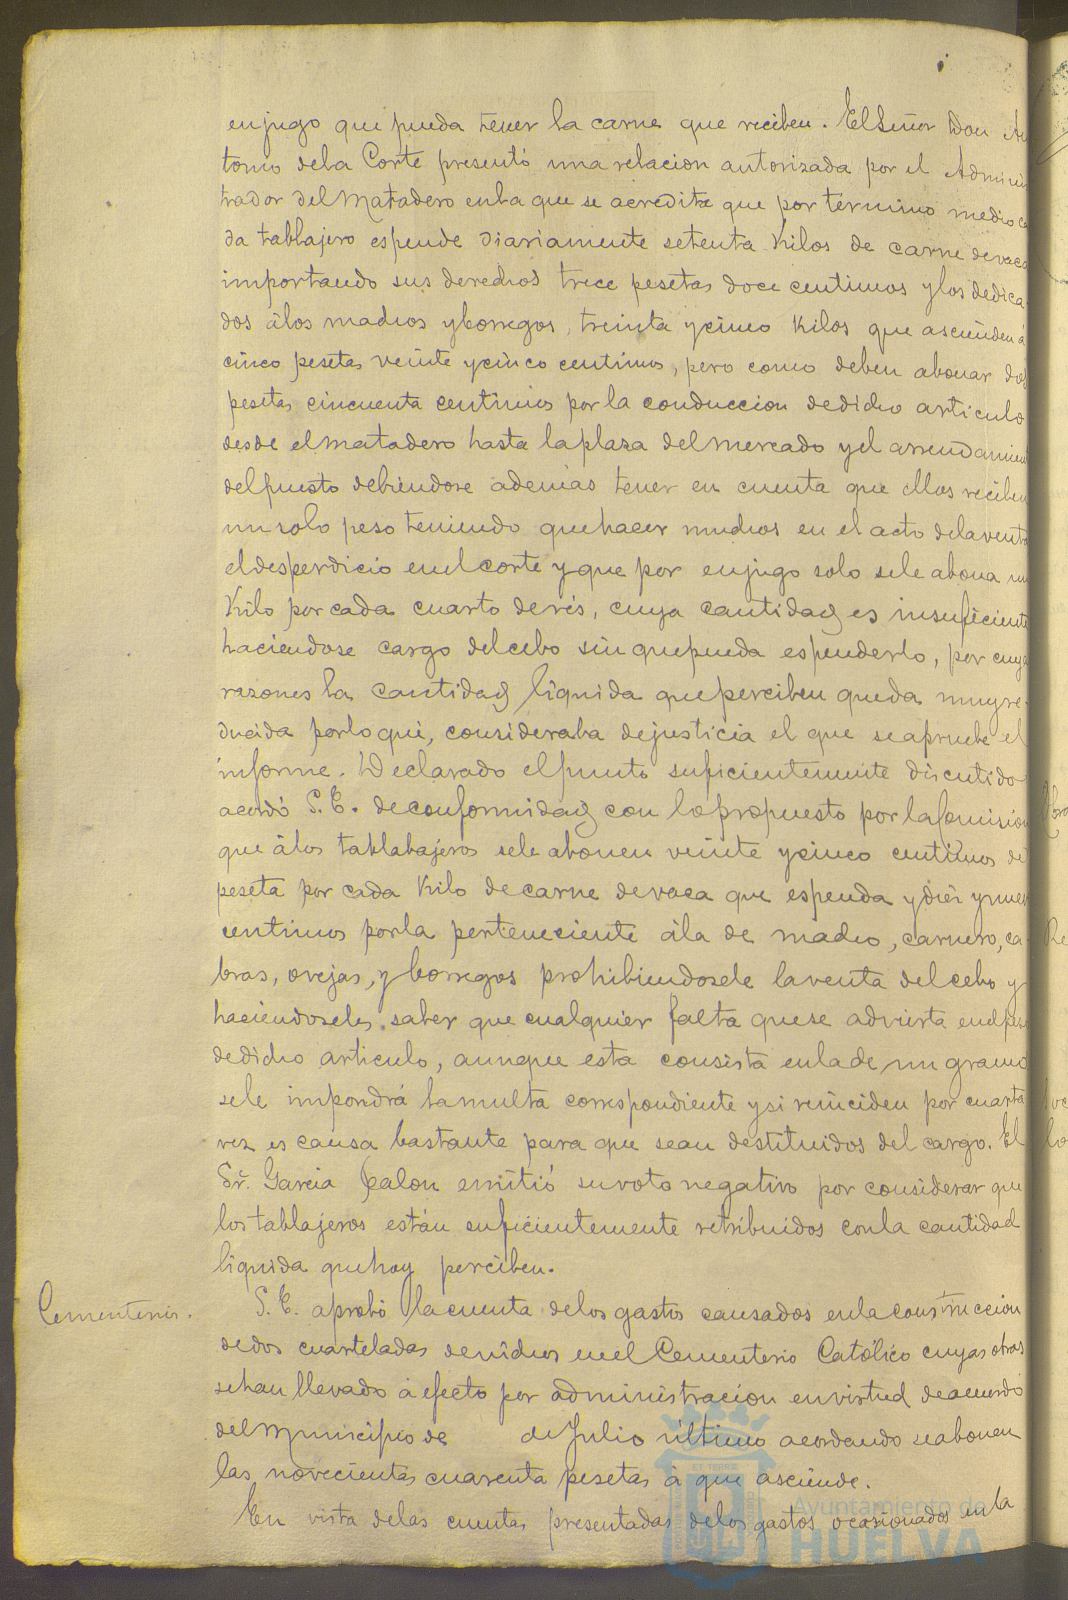 enjugo que pueda tener la carne que reciben. El Señor Don An
tonio dela Corte presentó una relacion autorizada por el Adminis
trador del Matadero enla que se acredita que por término medio ca
da tablajero espende diariamente setenta Kilos de carne devaca
importando sus derechos trece pesetas doce centimos ylos dedica
dos álos machos yborregos, treinta ycinco Kilos que ascienden á
cinco pesetas veinte ycinco centimos, pero como deben abonar dos
pesetas cincuenta centimos por la conduccion dedicho articulo
desde el matadero hasta laplaza del Mercado yel arrendamien
delpuesto debiendose ademas tener en cuenta que ellos reciben
un solo peso teniendo quehacer muchos en el acto delaventa
eldesperdicio enel corte y que por enjugo solo sele abona un
Kilo por cada cuarto derés, cuya cantidad es insuficiente
haciendose cargo delcebo sin quepueda espenderlo, por cuya
razones la cantidad liquida queperciben queda muy re-
ducida porlo que, consideraba dejusticia el que seapruebe el
informe. Declarado elpunto suficientemente discutido
acordó S. E. deconformidad con lo propuesto por laComision
que álos tablabajeros sele abonen veinte ycinco centimos de
peseta por cada Kilo de carne devaca que espenda ydiez ynueve
centimos porla perteneciente ála de macho, carnero, ca-
bras, ovejas, y borregos prohibiendosele laventa delcebo y
haciendoseles saber que cualquier falta quese advierta enelpeso
dedicho articulo, aunque esta consista enlade un gramo
sele impondrá lamulta correspondiente ysi reinciden por cuarta
vez es causa bastante para que sean destituidos del cargo. El
Sr. Garcia Calon emitió su voto negativo por considerar que
los tablajeros están suficientemente retribuidos conla cantidad
liquida quehoy perciben.
Cementerios.
S. E. aprobó la cuenta delos gastos causados enla construccion
dedos cuarteladas denichos enel Cementerio Católico cuyas obras
sehan llevado á efecto por administracion envirtud deacuerdo
del Municipio de de Julio último acordando seabonen
las novecientas cuarenta pesetas á que asciende.
En vista delas cuentas presentadas delos gastos ocasionados enla
Ayuntamiento de
HUELVA